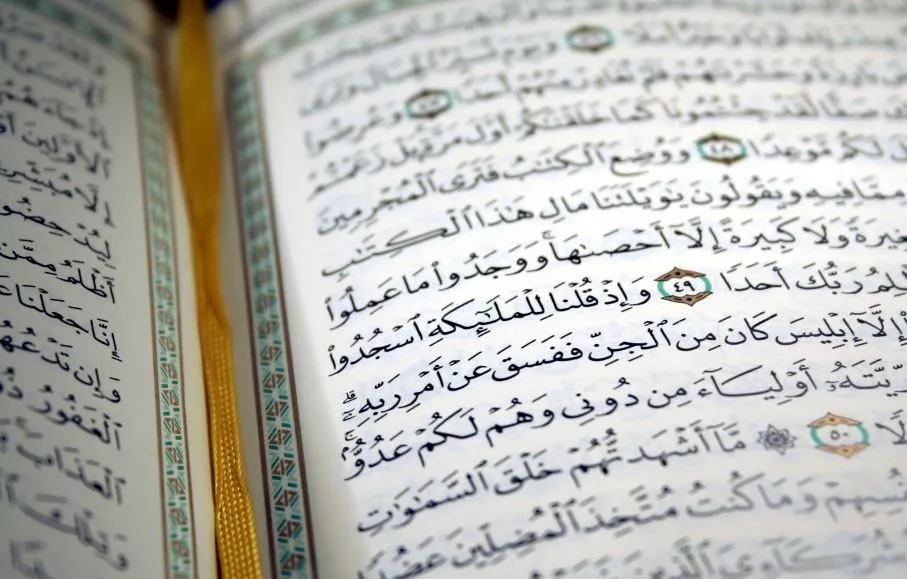 وَيَوْمَ نُسَيِّرُ ٱلْجِبَالَ وَتَرَى
بَارِزَةً وَحَشَرْنَٰهُمْ فَلَمْ نُغَادِرْ مِنْهُمْ أَحَدًا ٤٧ وَعُرِضُوا۟
صَفًّا لَّقَدْ جِئْتُمُونَا كَمَا خَلَقْنَٰكُمْ أَوَّلَ مَرَّةٍۭ بَلْ زَعَمْتُمْ
لَكُم مَّوْعِدًا ٤٨ وَوُضِعَ ٱلْكِتَٰبُ فَتَرَى ٱلْمُجْرِمِينَ
مِمَّا فِيهِ وَيَقُولُونَ يَٰوَيْلَتَنَا مَالِ هَٰذَا ٱلْكِتَٰبِ
غِيرَةً وَلَا كَبِيرَةً إِلَّآ أَحْصَىٰهَا ۚ وَوَجَدُوا۟ مَا عَمِلُوا۟
لِمُ رَبُّكَ أَحَدًا ٤٩ وَإِذْ قُلْنَا لِلْمَلَٰٓئِكَةِ ٱسْجُدُوا۟
إِلَّآ إِبْلِيسَ كَانَ مِنَ ٱلْجِنِّ فَفَسَقَ عَنْ أَمْرِ رَبِّهِۦٓ ۗ
يَّتَهُۥٓ أَوْلِيَآءَ مِن دُونِى وَهُمْ لَكُمْ عَدُوٌّۢ ۚ
لًا ٥٠ ۞ مَّآ أَشْهَدتُّهُمْ خَلْقَ ٱلسَّمَٰوَٰتِ
فُسِهِمْ وَمَا كُنتُ مُتَّخِذَ ٱلْمُضِلِّينَ عَضُدًا
شُرَكَآءِىَ ٱلَّذِينَ
جَآءَهُمُ
ٱلْأَوَّلِينَ أَوْ
إِلَّا مُبَشِّرِينَ
لِيُدْحِضُوا۟
أَظْلَمُ مِمَّن
إِنَّا جَعَلْنَا
وَإِن تَدْعُهُمْ
ٱلْغَفُورُ ذُو
ٱلْعَذَابَ
وَتِلْكَ